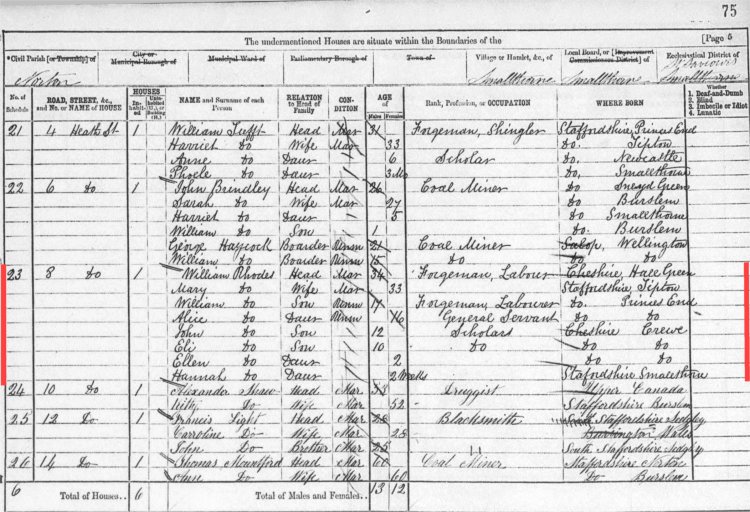 75
The undermentioned Houses are situate within the Boundaries of the [Page 5
*Civil Parish [or Township] of City or Municipal Borough of Municipal Ward of Parliamentary Borough of Town of Village or Hamlet, &c., of Local Board, or [Improvement Commissioners District] of Ecclesiastical District of
Norton Smallthorne Smallthorne St Saviours Smallthorne
No. of Schedule ROAD, STREET, &c., and No. or NAME of HOUSE HOUSES Inhabited Uninhabited (U.), or Building (B.) NAME and Surname of each Person RELATION to Head of Family CONDITION AGE of Males Females Rank, Profession, or OCCUPATION WHERE BORN Whether 1. Deaf-and-Dumb 2. Blind 3. Imbecile or Idiot 4. Lunatic
21 4 Heath St 1 William Tufft Head Mar 31 Forgeman, Shingler Staffordshire Princes End
Harriet Do Wife Mar 33 Do. Tipton
Anne Do Daur 6 Scholar Do, Newcastle
Phoebe Do Daur 3 Mo Do, Smallthorne
22 6 Do 1 John Brindley Head Mar 26 Coal Miner Do Sneyd Green
Sarah Do Wife Mar 27 Do Burslem
Harriet Do Daur 5 Do Smallthorne
William Do Son 1 Do. Burslem
George Haycock Boarder Unm 21 Coal Miner Salop, Wellington
William Do Boarder Unm 15 Do Do Do
23 8 Do 1 William Rhodes Head Mar 34 Forgeman, Labour Cheshire, Hall Green
Mary Do Wife Mar 33 Staffordshire, Tipton
William Do Son Unm 17 Forgeman, Labourer Do. Princes End
Alice Do Daur Unm 16 General Servant Do Do
John Do Son 12 Scholars Cheshire Crewe
Eli Do Son 10 Do Do Do
Ellen Do Daur 2 Do Do
Hannah Do Daur 2 Weeks Staffordshire Smallthorne
24 10 Do 1 Alexander Head Mar 53 Druggist Upper Canada
Do Wife Mar 52 Staffordshire Burslem
25 12 Do 1 Francis Light Head Mar 28 Blacksmith South Staffordshire Sedgley
Carroline Do Wife Mar 25 Walls
John Do Brother Mar 25 " South Staffordshire Sedgley
26 14 Do 1 Thomas Mountford Head Mar 60 Coal Miner Staffordshire Norton
Anne Do Wife Mar 60 Do Burslem
6 Total of Houses.. 6 Total of Males and Females.. 13 12